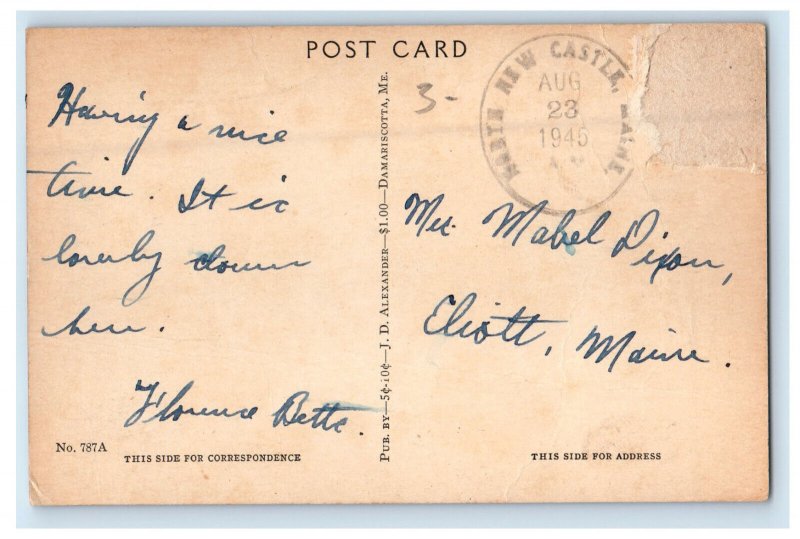 POST CARD
NORTH NEW CASTLE, MAINE
AUG
23
1945
A.M.
3-
Having a nice
time. It is
lovely down
here.
Florence Betts.
Mrs. Mabel Dixon,
Eliott, Maine.
PUB. BY—5¢-10¢—J. D. ALEXANDER—$1.00—DAMARISCOTTA, ME.
No. 787A
THIS SIDE FOR CORRESPONDENCE
THIS SIDE FOR ADDRESS